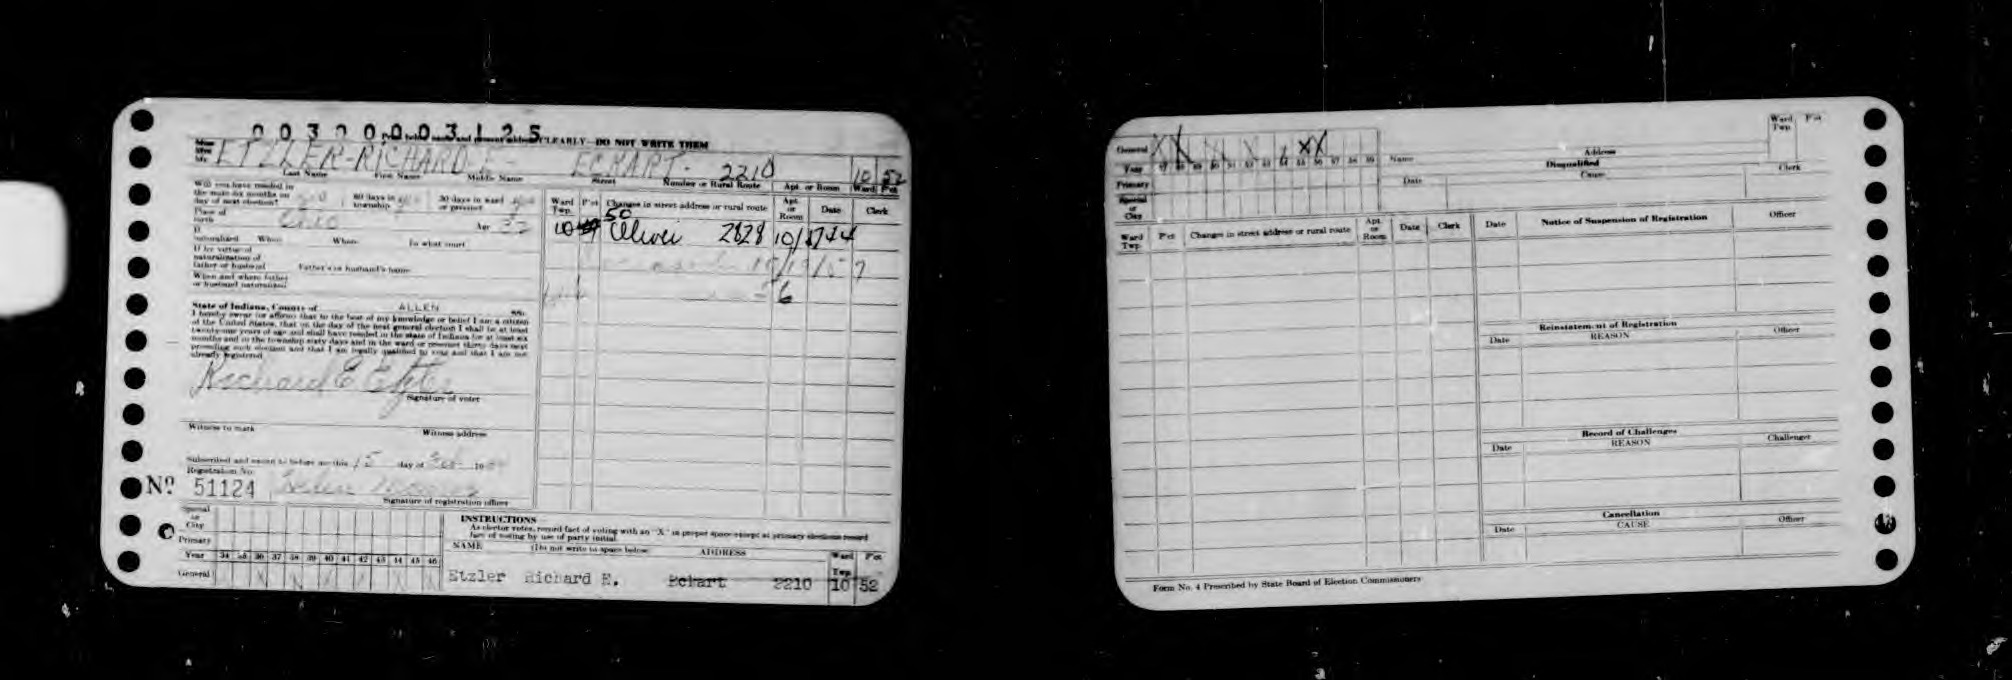 0 0 3 2 0 0 0 3 1 2 5
CLEARLY—DO NOT WRITE THEM
Mr. ETZLER-RICHARD E- ECKART- 2210 10 52
Last Name First Name Middle Name Street Number or Rural Route Apt. or Room Ward P'ct
Will you have resided in
the state six months on
day of next election? 60 days in township 30 days in ward or precinct
Place of
birth Ohio Age 32
If
naturalized When Where In what court
If by virtue of
naturalization of
father or husband Father's or husband's name
When and where father
or husband naturalized
State of Indiana, County of ALLEN ss:
I hereby swear (or affirm) that to the best of my knowledge or belief I am a citizen
of the United States, that on the day of the next general election I shall be at least
twenty-one years of age and shall have resided in the state of Indiana for at least six
months and in the township sixty days and in the ward or precinct thirty days next
preceding such election and that I am legally qualified to vote and that I am not
already registered
Richard E Etzler
Signature of voter
Witness to mark Witness address
Subscribed and sworn to before me this 15 day of 19
Registration No.
Nº 51124
Signature of registration officer
Ward Twp. P'ct Changes in street address or rural route Apt. or Room Date Clerk
50
10 Oliver 2828 10/
Special
or
City
Primary
Year 34 35 36 37 38 39 40 41 42 43 44 45 46
General X
INSTRUCTIONS
As elector votes, record fact of voting with an "X" in proper space except at primary elections record
fact of voting by use of party initial.
NAME (Do not write in space below) ADDRESS Ward Twp. P'ct
Etzler Richard E. Eckart 2210 10 52
General X X X X X X X
Year 47 48 49 50 51 52 53 54 55 56 57 58 59
Primary
Special
or
City
Name Address Ward Twp. P'ct
Disqualified
Date Cause Clerk
Ward Twp. P'ct Changes in street address or rural route Apt. or Room Date Clerk
Date Notice of Suspension of Registration Officer
Reinstatement of Registration
Date REASON Officer
Record of Challenges
Date REASON Challenger
Cancellation
Date CAUSE Officer
Form No. 4 Prescribed by State Board of Election Commissioners